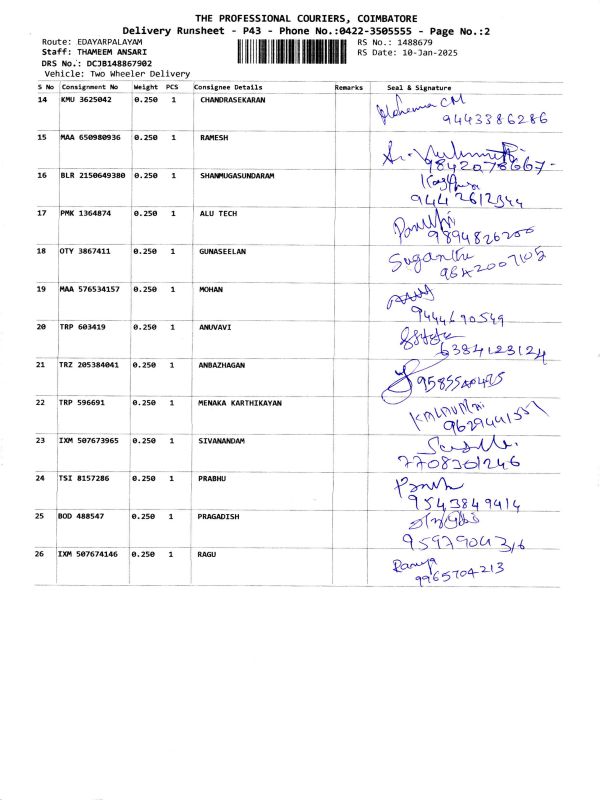 THE PROFESSIONAL COURIERS, COIMBATORE
Delivery Runsheet - P43 - Phone No.:0422-3505555 - Page No.:2
Route: EDAYARPALAYAM RS No.: 1488679
Staff: THAMEEM ANSARI RS Date: 10-Jan-2025
DRS No.: DCJB148867902
Vehicle: Two Wheeler Delivery
S No Consignment No Weight PCS Consignee Details Remarks Seal & Signature
14 KMU 3625042 0.250 1 CHANDRASEKARAN
9443386286
15 MAA 650980936 0.250 1 RAMESH
9842078667-
16 BLR 2150649380 0.250 1 SHANMUGASUNDARAM
9442612344
17 PMK 1364874 0.250 1 ALU TECH
9894826200
18 OTY 3867411 0.250 1 GUNASEELAN Suganthi
9842007105
19 MAA 576534157 0.250 1 MOHAN
9444690549
20 TRP 603419 0.250 1 ANUVAVI
6384123124
21 TRZ 205384041 0.250 1 ANBAZHAGAN
22 TRP 596691 0.250 1 MENAKA KARTHIKAYAN
9629441551
23 IXM 507673965 0.250 1 SIVANANDAM
7708301246
24 TSI 8157286 0.250 1 PRABHU
9543849414
25 BOD 488547 0.250 1 PRAGADISH
26 IXM 507674146 0.250 1 RAGU Ramya
9965704213